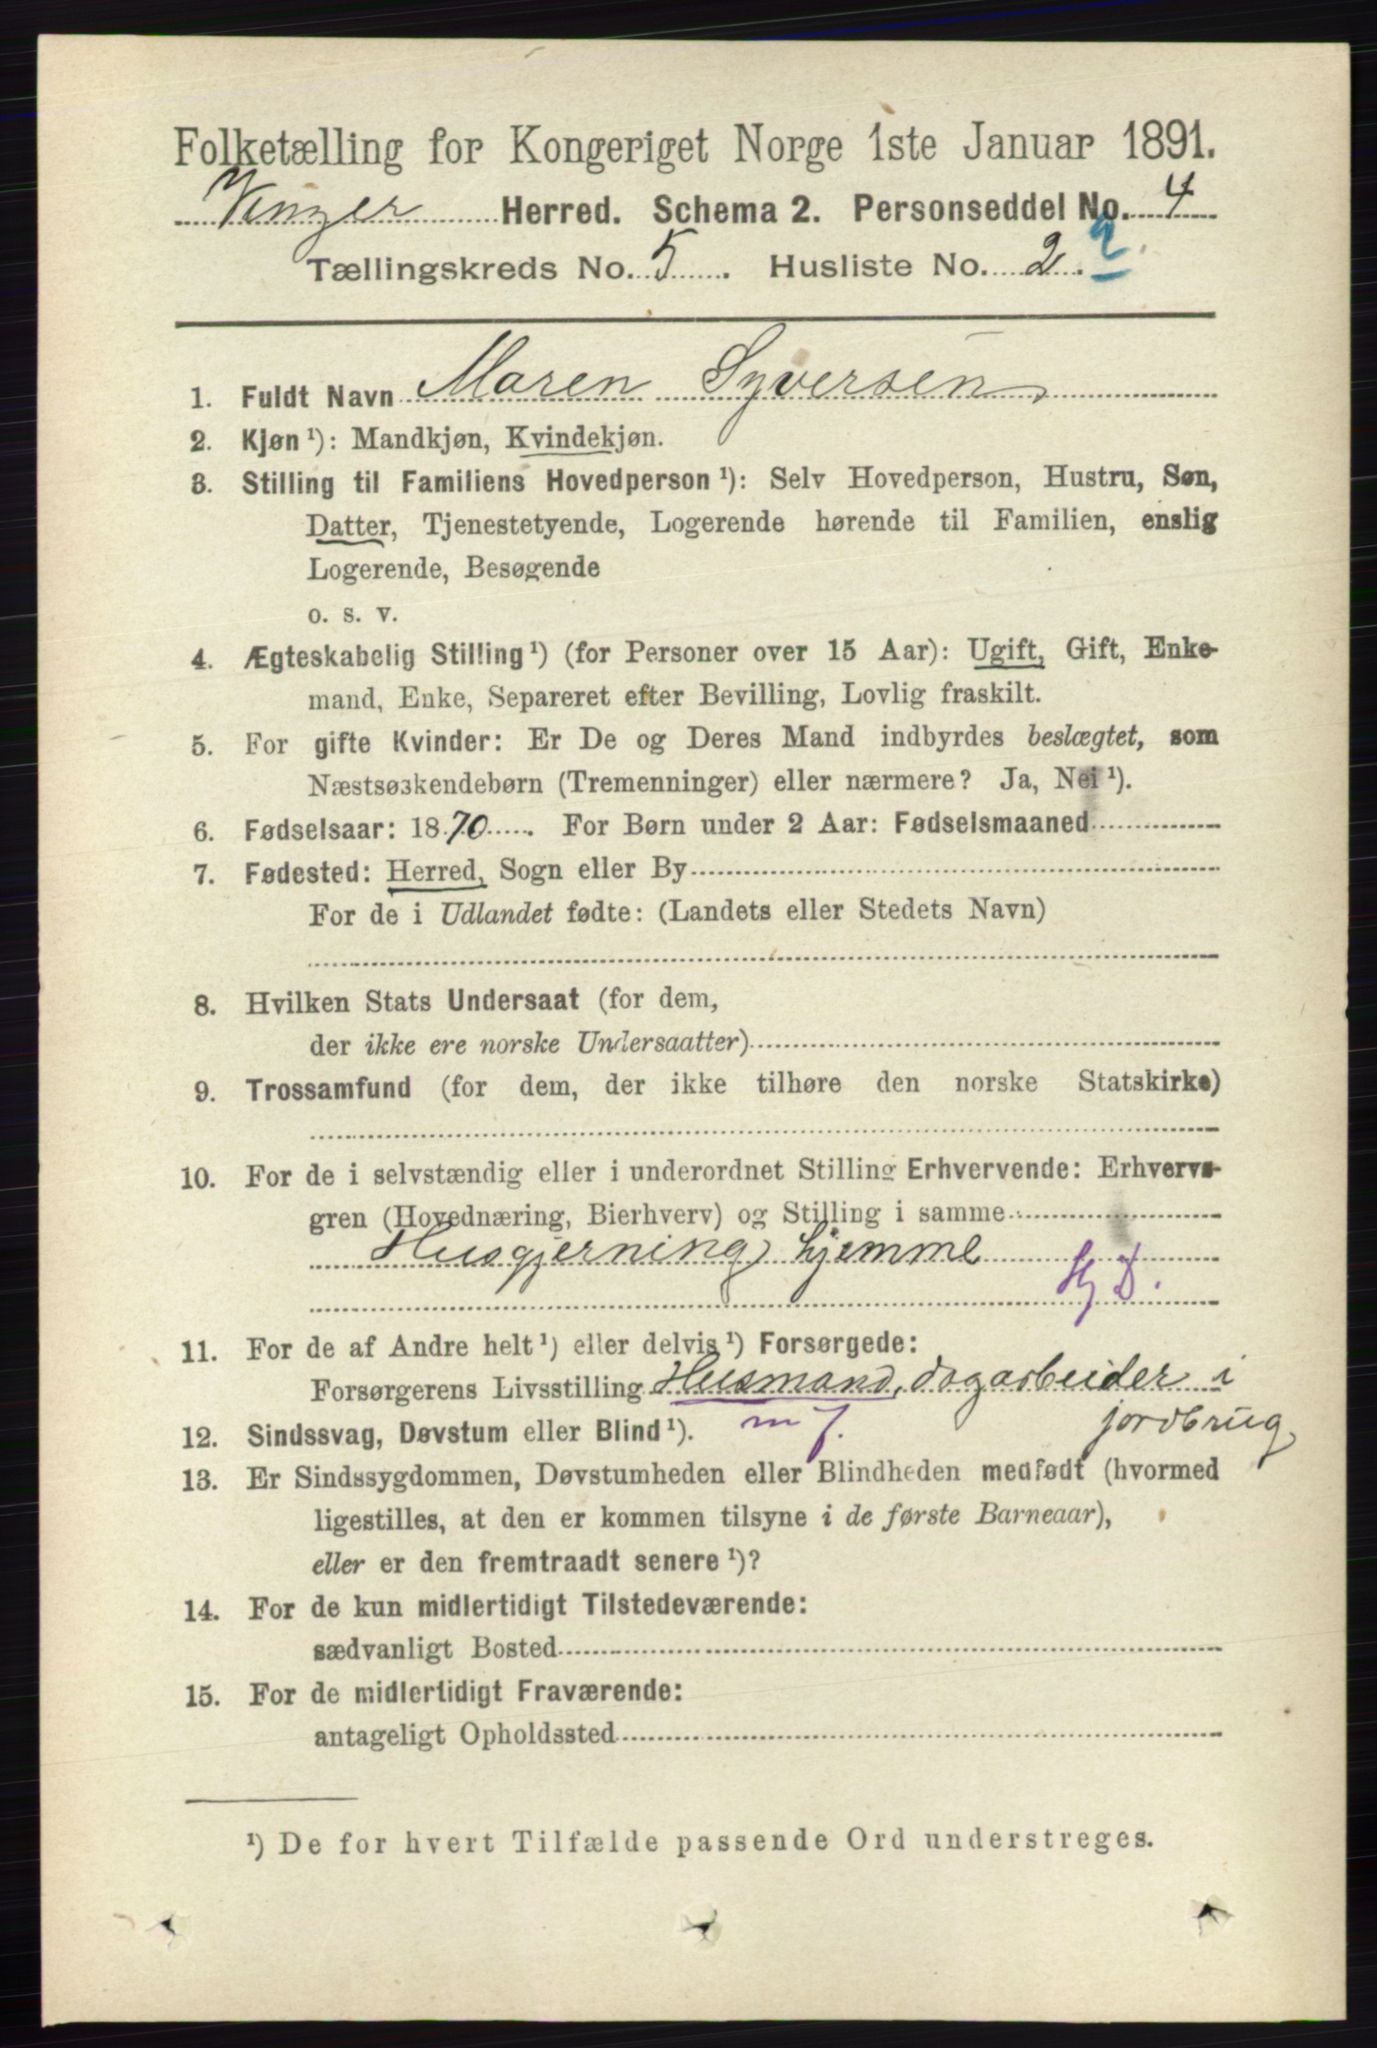 Folketælling for Kongeriget Norge 1ste Januar 1891.
Vinger Herred. Schema 2. Personseddel No. 4
Tællingskreds No. 5. Husliste No. 2. 2
1. Fuldt Navn Maren Syversen
2. Kjøn¹): Mandkjøn, Kvindekjøn.
3. Stilling til Familiens Hovedperson¹): Selv Hovedperson, Hustru, Søn,
Datter, Tjenestetyende, Logerende hørende til Familien, enslig
Logerende, Besøgende
o. s. v.
4. Ægteskabelig Stilling¹) (for Personer over 15 Aar): Ugift, Gift, Enke-
mand, Enke, Separeret efter Bevilling, Lovlig fraskilt.
5. For gifte Kvinder: Er De og Deres Mand indbyrdes beslægtet, som
Næstsøskendebørn (Tremenninger) eller nærmere? Ja, Nei¹).
6. Fødselsaar: 1870. For Børn under 2 Aar: Fødselsmaaned
7. Fødested: Herred, Sogn eller By
For de i Udlandet fødte: (Landets eller Stedets Navn)
8. Hvilken Stats Undersaat (for dem,
der ikke ere norske Undersaatter)
9. Trossamfund (for dem, der ikke tilhøre den norske Statskirke)
10. For de i selvstændig eller i underordnet Stilling Erhvervende: Erhvervs-
gren (Hovednæring, Bierhverv) og Stilling i samme
Husgjerning hjemme
Hj D.
11. For de af Andre helt¹) eller delvis¹) Forsørgede:
Forsørgerens Livsstilling Husmand, dagarbeider i
jordbrug
m J.
12. Sindssvag, Døvstum eller Blind¹).
13. Er Sindssygdommen, Døvstumheden eller Blindheden medfødt (hvormed
ligestilles, at den er kommen tilsyne i de første Barneaar),
eller er den fremtraadt senere¹)?
14. For de kun midlertidigt Tilstedeværende:
sædvanligt Bosted
15. For de midlertidigt Fraværende:
antageligt Opholdssted
¹) De for hvert Tilfælde passende Ord understreges.